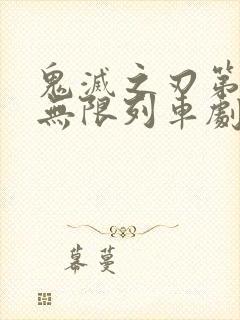 鬼滅之刃第
無限列車劇
幕蔓